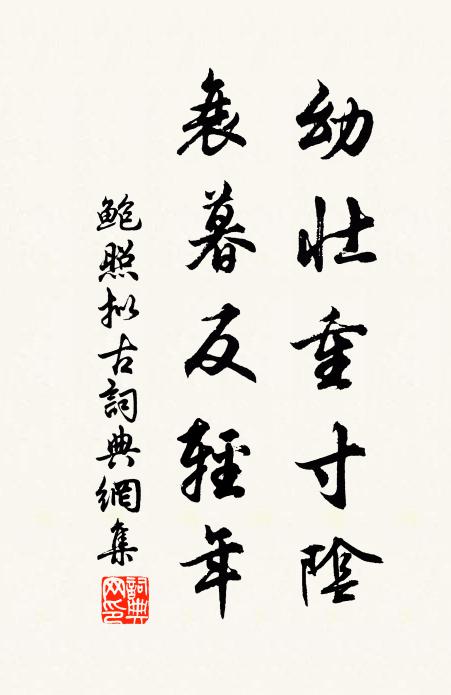 幼壯重寸陰
衰暮反輕年
鮑照拟古詞典網集
詞典网印